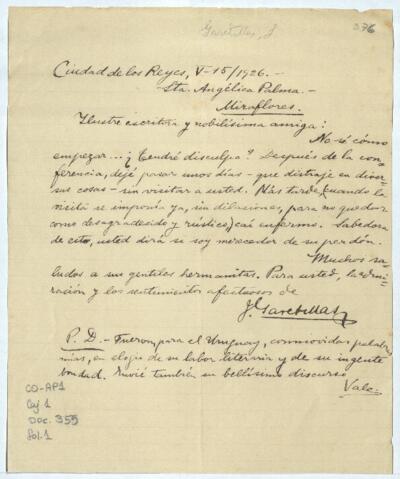 Garetillas, J.
376
Ciudad de los Reyes, V-15/1926.-
-Sta. Angélica Palma.-
Miraflores.
Ilustre escritora y nobilísima amiga:
No sé cómo
empezar... ¿Tendré disculpa? Después de la con-
ferencia, dejé pasar unos días - que distraje en diver-
sas cosas - sin visitar a usted. Más tarde, (cuando la
visita se imponía ya, sin dilaciones, para no quedar
como desagradecido y rústico,) caí enfermo. Sabedora
de esto, usted dirá si soy merecedor de su perdón.
Muchos sa-
ludos a sus gentiles hermanitas. Para usted, la admi-
ración y los sentimientos afectuosos de
P. D.- Fueron, para el Uruguay, conmovidas palabras
mías, en elogio de su labor literaria y de su ingente
bondad. Envié también su bellísimo discurso
Vale.-
CO-AP1
Caj 1
Doc. 355
Fol. 1